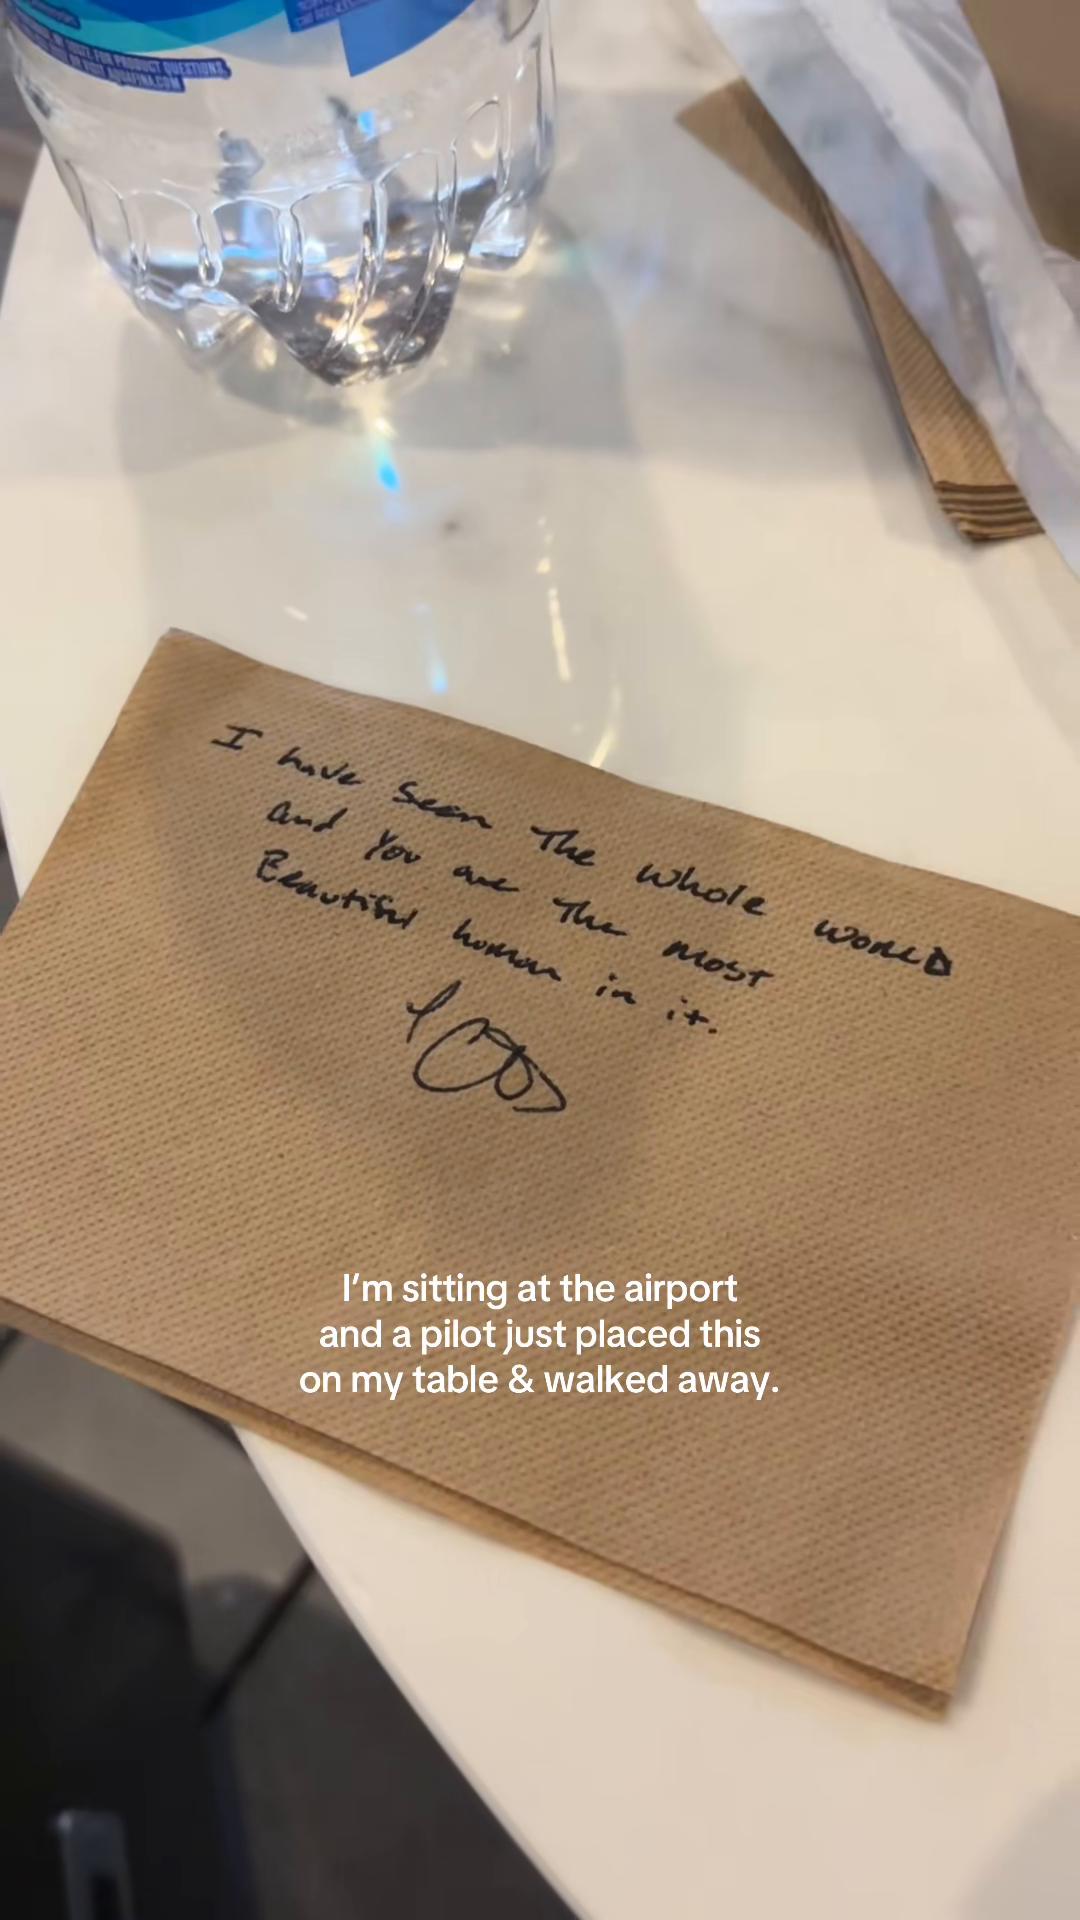 FOR PRODUCT QUESTIONS,
OR VISIT AQUAFINA.COM
I have seen The whole worlD
and You are The most
Beautiful human in it.
I'm sitting at the airport
and a pilot just placed this
on my table & walked away.